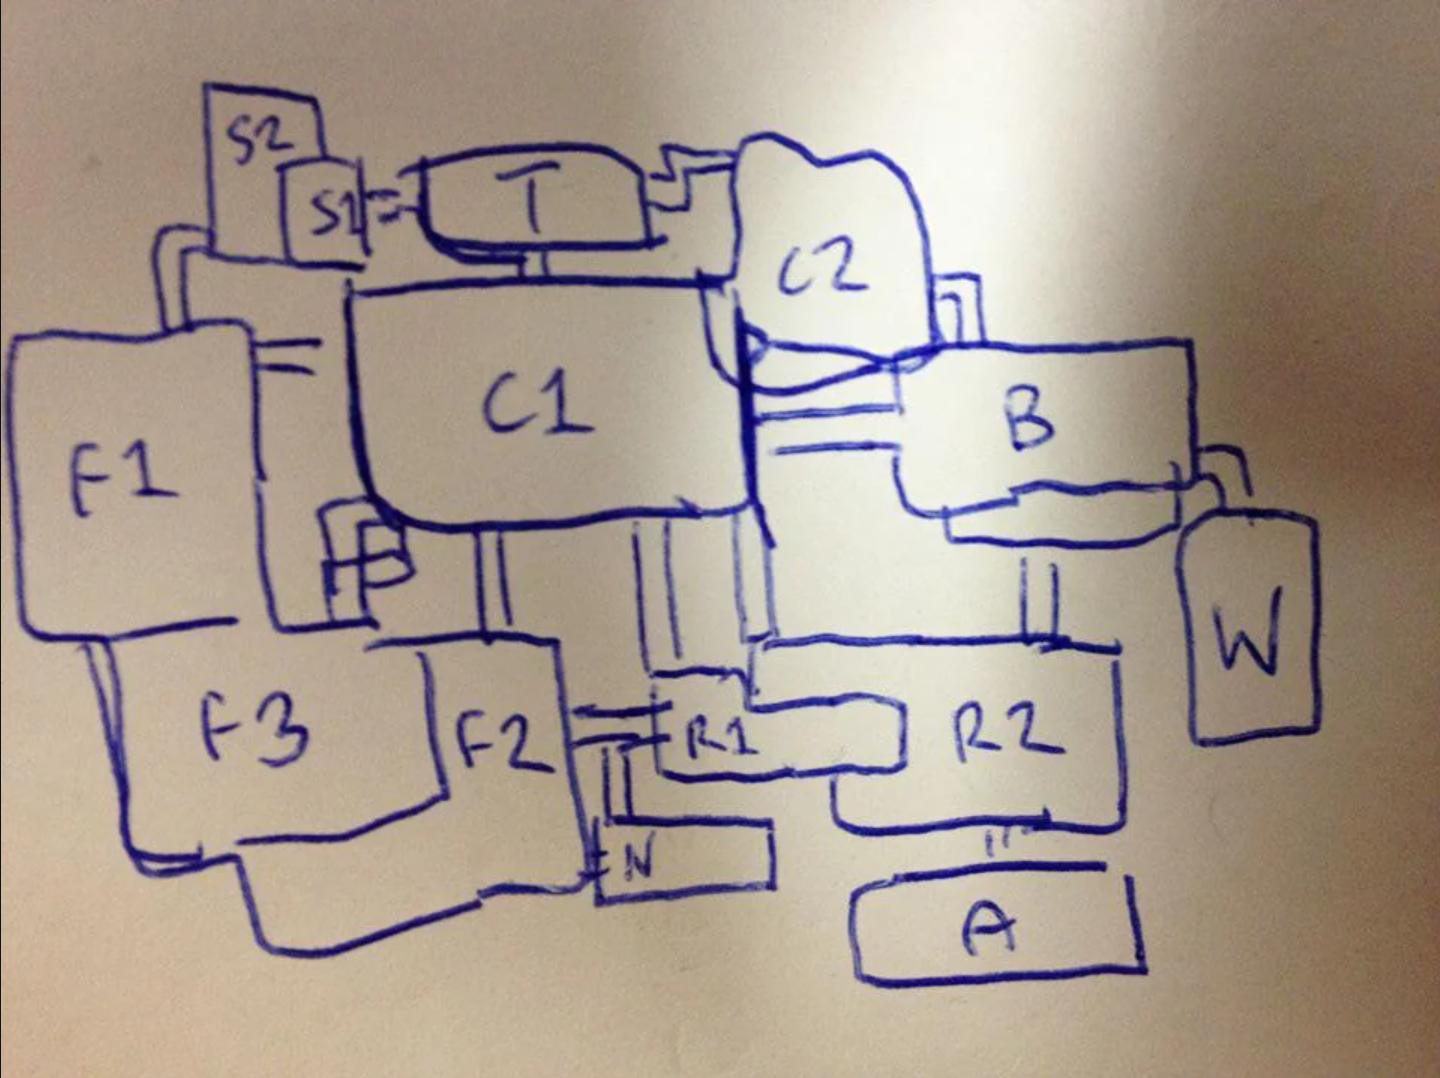 S2
S1
T
C2
C1
B
F1
W
F3
F2
R1
R2
N
A